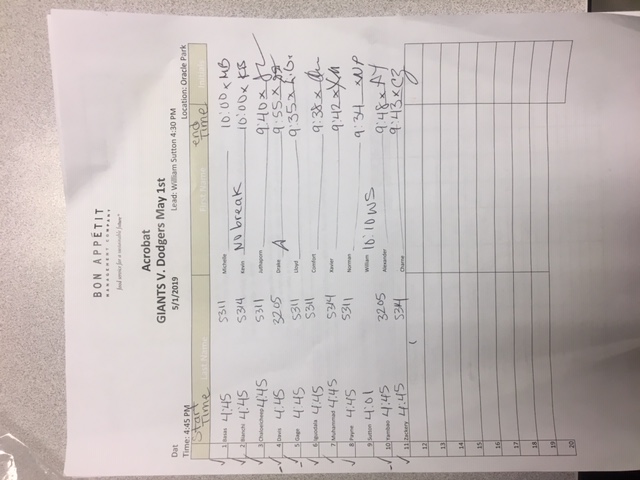 BON APPÉTIT
MANAGEMENT COMPANY
food service for a sustainable future
Acrobat
GIANTS V. Dodgers May 1st
5/1/2019
Dat
Time: 4:45 PM Lead: William Sutton 4:30 PM Location: Oracle Park
Start Time Last Name end Time
1 4:45 5311 Michelle 10:00 x MB
2 Bianchi 4:45 5314 Kevin No break 10:00 x KB
3 4:45 5311 9:40 x
4 Davis 4:45 3205 Drake A 9:55 x
5 Gage 4:45 5311 Lloyd 9:35 x
6 Iguodala 4:45 5311 Comfort 9:38 x
7 Muhammad 4:45 5314 Xavier 9:42 x
8 Payne 4:45 5311 Norman 9:34 x NP
9 Sutton 4:01 William 10:10 WS
10 4:45 3205 Alexander 9:48 x AY
11 Zackery 4:45 5314 9:43 x CZ
12
13
14
15
16
17
18
19
20